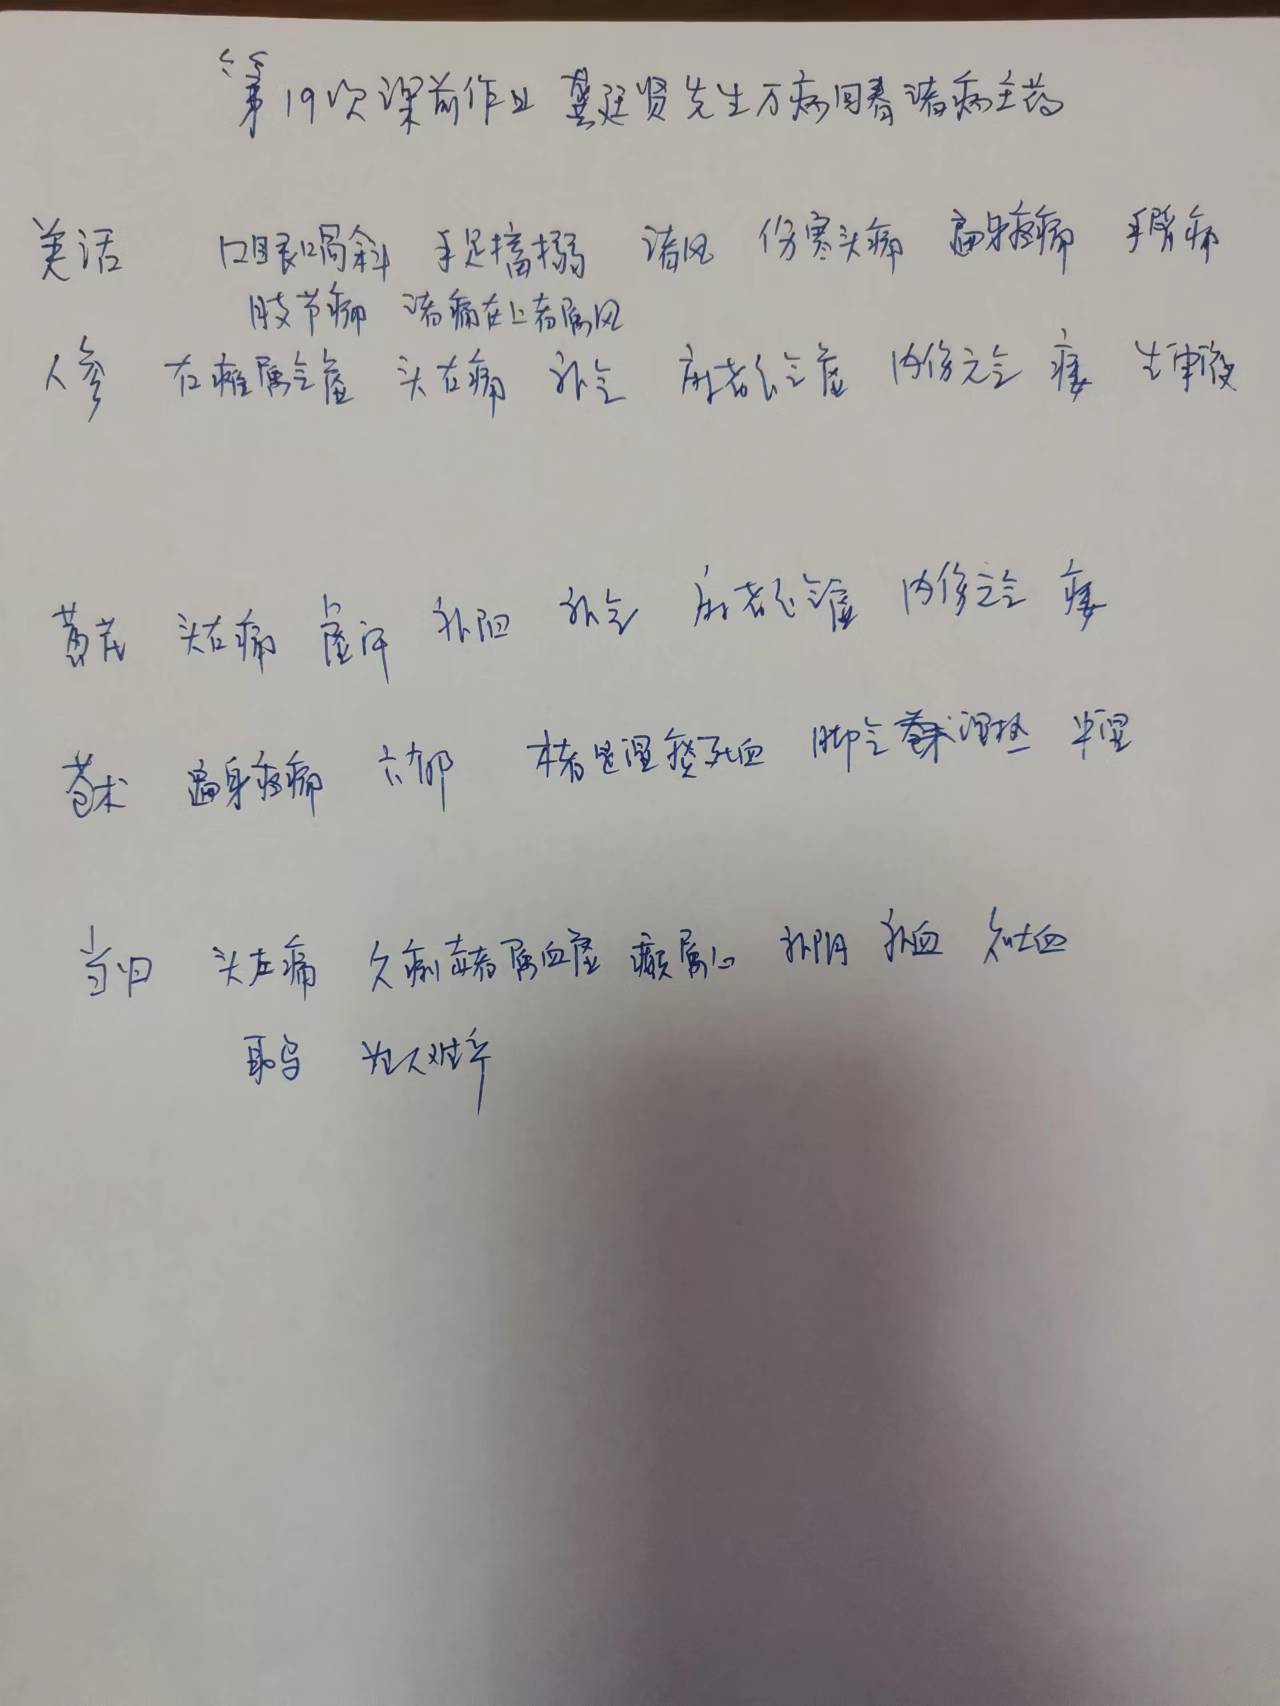 第19次课前作业 龚廷贤先生万病回春诸病主药
羌活 口眼㖞斜 手足搐搦 诸风 伤寒头痛 遍身疼痛 手臂痛
肢节痛 诸痛在上者属风
人参 右瘫属气虚 头右痛 补气 麻者是气虚 内伤元气 痿 生津液
黄芪 头右痛 虚汗 补阳 补气 麻者是气虚 内伤元气 痿
苍术 遍身疼痛 六郁 木者是湿痰死血 脚气 湿热 中湿
当归 头左痛 久痢 者属血虚 癫属心 补阴 补血 久吐血
耳鸣 难